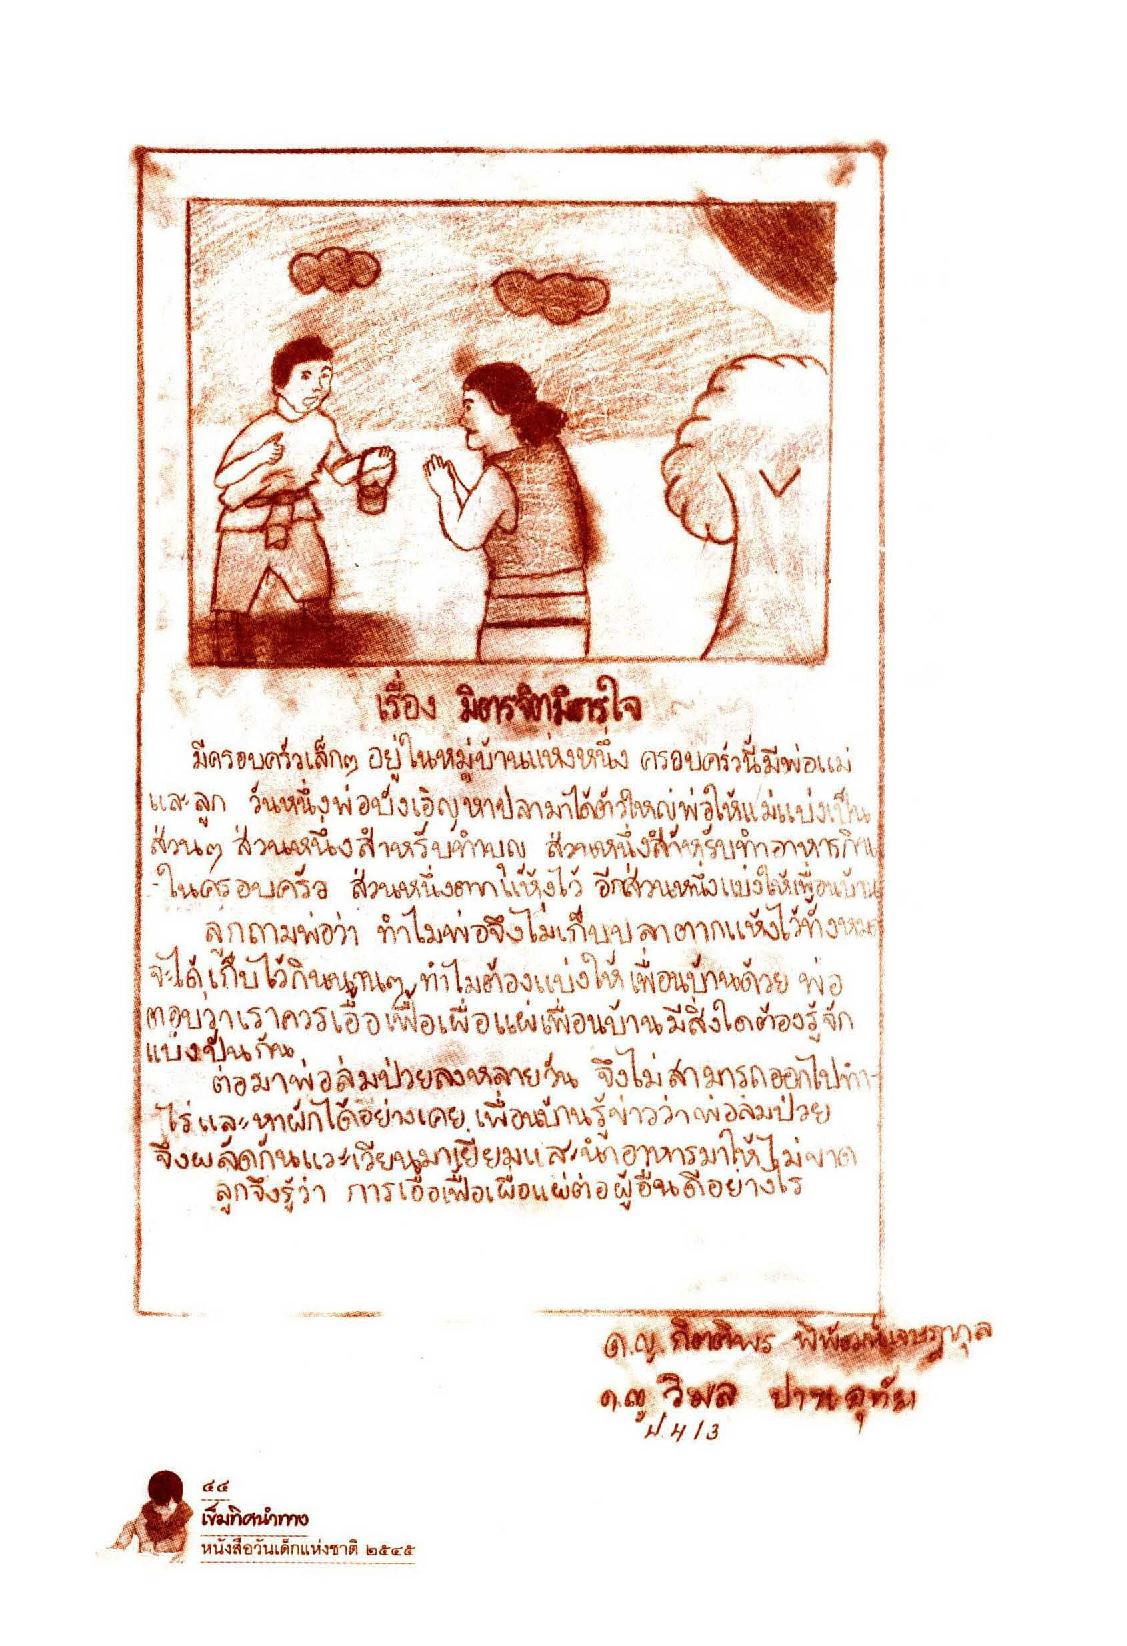 เรื่อง มิตรจิตมิตรใจ
มีครอบครัวเล็กๆ อยู่ในหมู่บ้านแห่งหนึ่ง ครอบครัวนี้มีพ่อแม่
และลูก วันหนึ่งพ่อบังเอิญหาปลามาได้ตัวใหญ่พ่อให้แม่แบ่งเป็น
ส่วนๆ ส่วนหนึ่งสำหรับทำบุญ ส่วนหนึ่งสำหรับทำอาหารกิน
ในครอบครัว ส่วนหนึ่งตากแห้งไว้ อีกส่วนหนึ่งแบ่งให้เพื่อนบ้าน
ลูกถามพ่อว่า ทำไมพ่อจึงไม่เก็บปลาตากแห้งไว้ทั้งหมด
จะได้เก็บไว้กินนานๆ ทำไมต้องแบ่งให้เพื่อนบ้านด้วย พ่อ
ตอบว่าเราควรเอื้อเฟื้อเผื่อแผ่เพื่อนบ้านมีสิ่งใดต้องรู้จัก
แบ่งปันกัน
ต่อมาพ่อล้มป่วยลงหลายวัน จึงไม่สามารถออกไปทำ
ไร่และหาผักได้อย่างเคย เพื่อนบ้านรู้ข่าวว่าพ่อล้มป่วย
จึงผลัดกันแวะเวียนมาเยี่ยมและนำอาหารมาให้ไม่ขาด
ลูกจึงรู้ว่า การเอื้อเฟื้อเผื่อแผ่ต่อผู้อื่นดีอย่างไร
ด.ญ. กิตติพร
ด.ญ วิมล
ป 4/3
๔๔
เข็มทิศนำทาง
หนังสือวันเด็กแห่งชาติ ๒๕๔๕